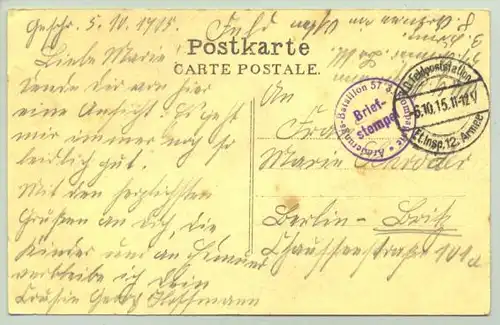 Geschr. 5.10.1915. Feld
Postkarte
CARTE POSTALE.
Liebe Marie!
Sende Dir von hier
eine Ansicht. Es geht
mir immer noch so
leidlich gut.
Mit den herzlichsten
Grüßen an Dich, die
Kinder und an
verbleibe ich Dein
Cousin Georg Hoffmann
Armierungs-Bataillon 57
Brief-
stempel
Feldpoststation
8.10.15.11-12V
Et.Insp.12.Armee
An
Frau
Marie Schröder
Berlin-Britz
Chausseestraße 101a